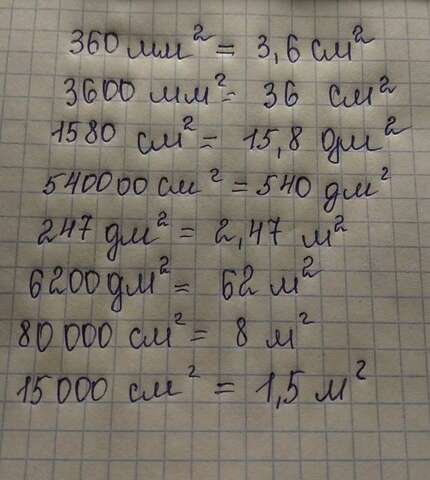 360 мм² = 3,6 см²
3600 мм² = 36 см²
1580 см² = 15,8 дм²
540000 см² = 540 дм²
247 дм² = 2,47 м²
6200 дм² = 62 м²
80 000 см² = 8 м²
15 000 см² = 1,5 м²